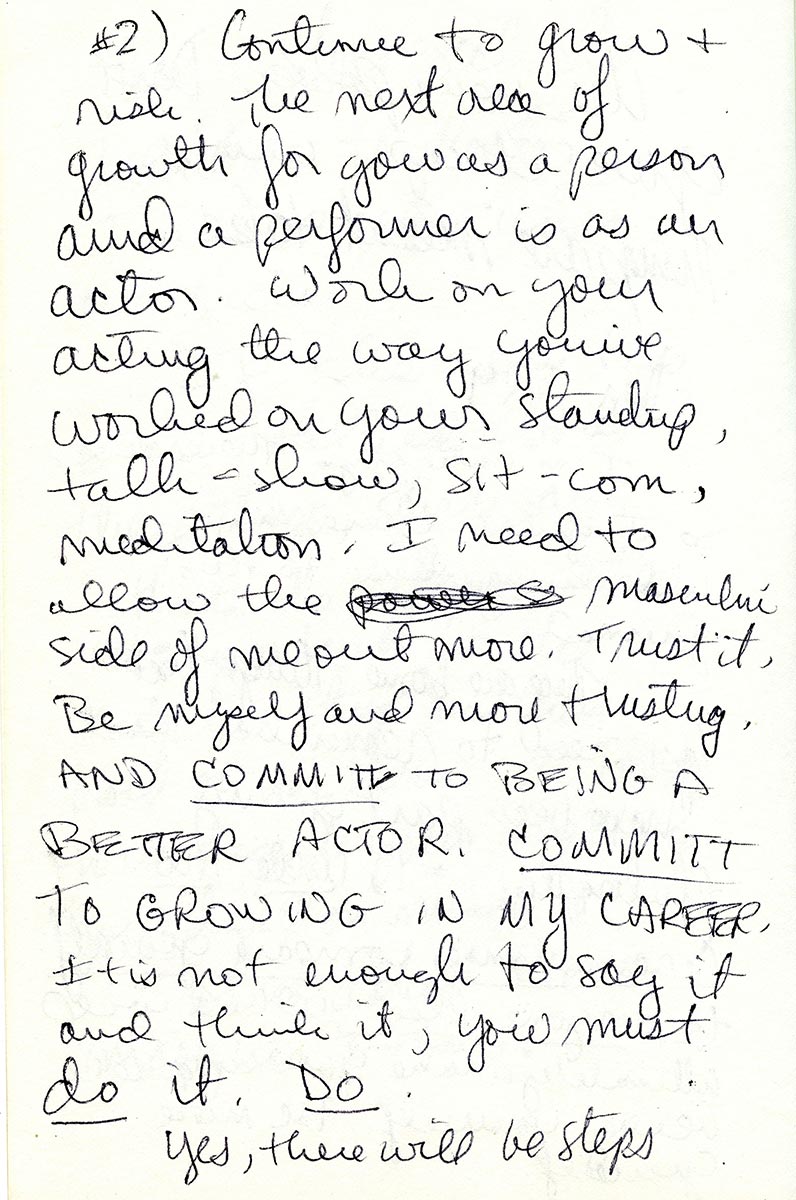 #2) Continue to grow +
risk. The next area of
growth for you as a person
and a performer is as an
actor. Work on your
acting the way you've
worked on your standup,
talk-show, sit-com,
meditation. I need to
allow the masculine
side of me out more. Trust it,
Be myself and more trusting.
AND COMMITT TO BEING A
BETTER ACTOR. COMMITT
TO GROWING IN MY CAREER.
It is not enough to say it
and think it, you must
do it. DO.
Yes, there will be steps